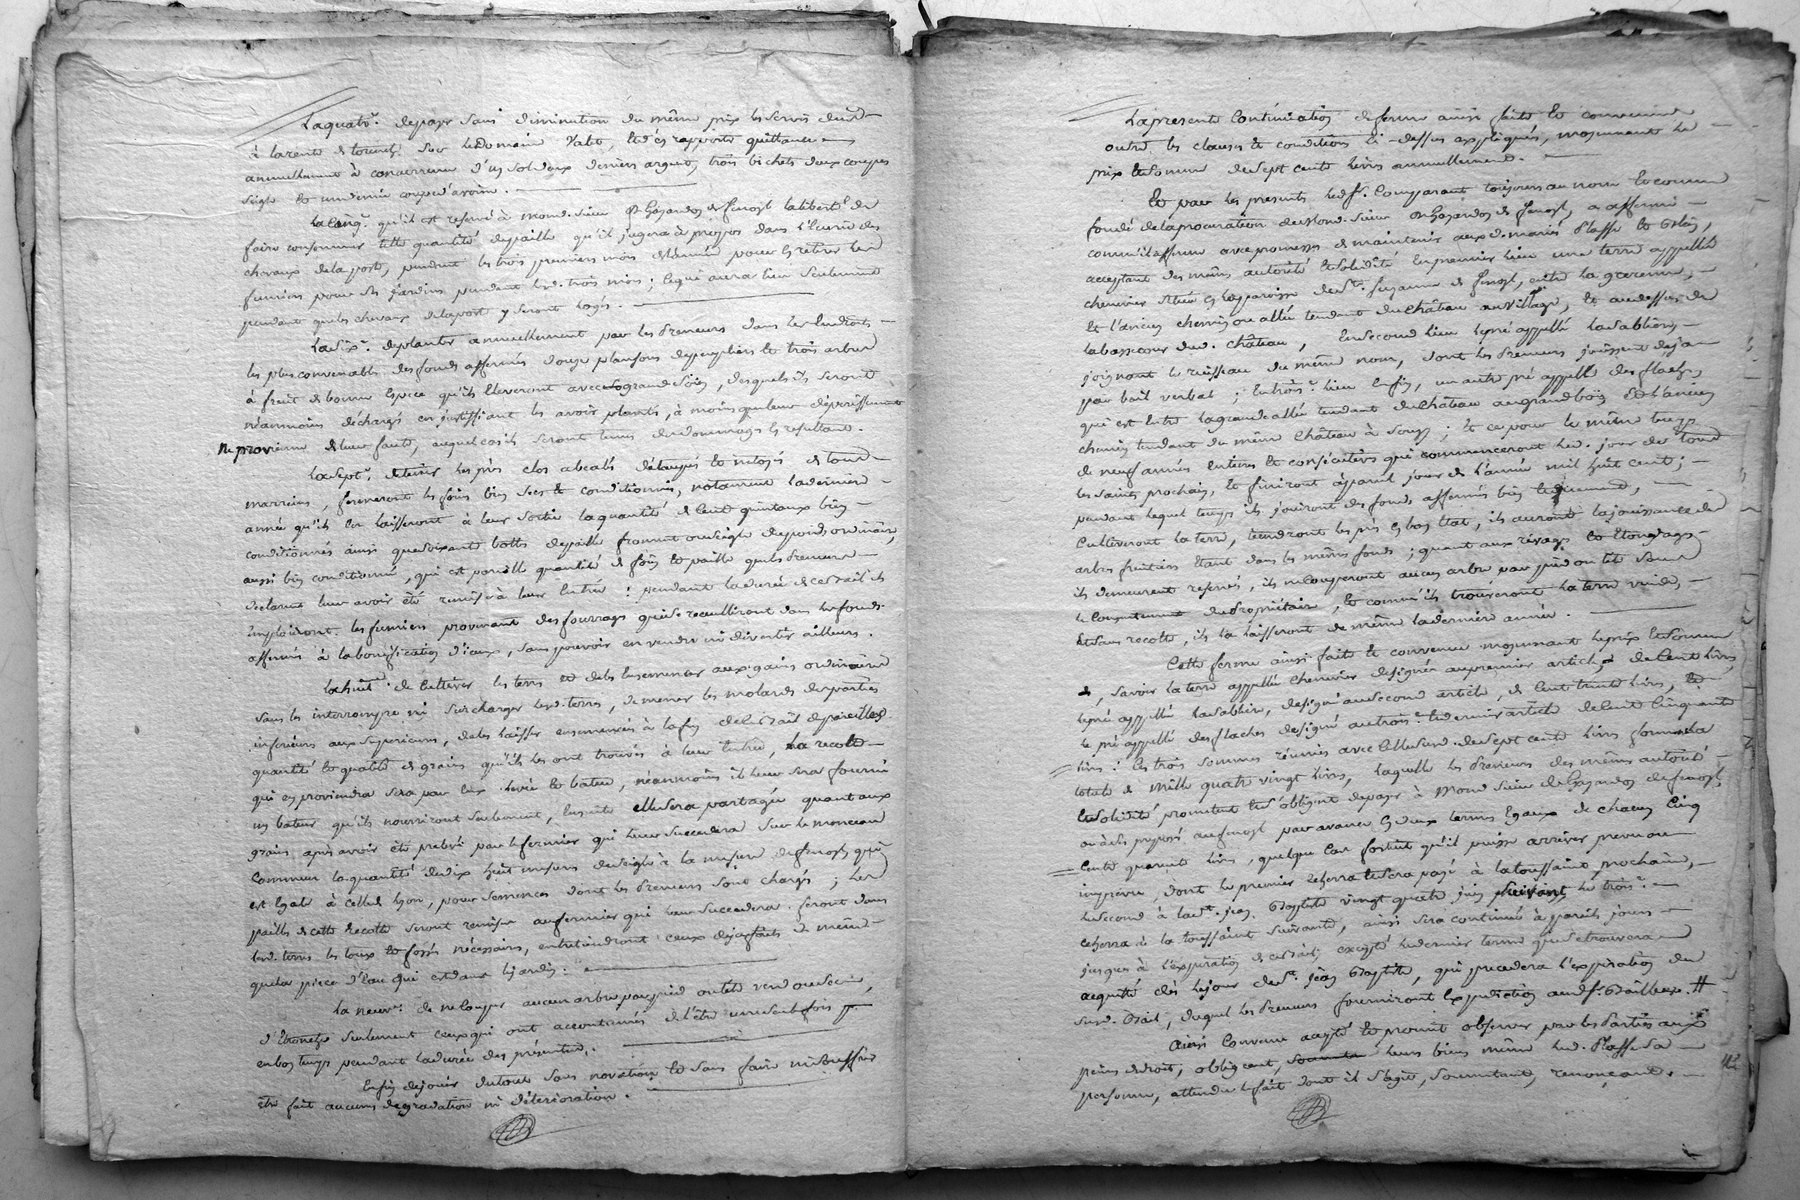 La quatr.e de payer sans diminution du même prix les servis dus
à la rente de sur le Domaine et d'en rapporter quittance
annuellement à concurrence d'un sol deux deniers argent, trois bichets deux coupes
seigle et une demie coupe d'avoine.
La cinq.e qu'il est reservé à mond. sieur de fenoyl la liberté de
faire consommer telle quantité de paille qu'il jugera à propos dans l'Ecurie des
chevaux de la poste, pendant les trois premiers mois de l'année pour en retirer les
fumiers pour ses jardins pendant lesd. trois mois; ce qui aura lieu seulement
pendant que les chevaux de la poste y seront logés.
La six.e de planter annuellement par les Preneurs dans les Endroits
les plus convenables des fonds affermés douze plançons de peupliers et trois arbres
à fruit de bonne Espece qu'ils Eleveront avec grande soin, desquels ils seront
néanmoins déchargés en justiffiant les avoir plantés, à moins que leur dépérissement
ne provienne de leur faute, auquel cas ils seront tenus des dommages en resultant.
La sept.e de tenir les prés clos et netoyés de tout
marrein, fermeront les foins bien secs et conditionnés, notament la derniere
année qu'ils En laisseront à leur sortie la quantité de Cent quintaux bien
conditionnés ainsi que soixante bottes de paille froment ou seigle de poids ordinaire
aussi bien conditionné, qui est pareille quantité de foin et paille que les Preneurs
declarent leur avoir été remise à leur Entrée; pendant la durée de ce bail ils
Employeront les fumiers provenant des fourrages qui se recueilliront dans les fonds
affermés à la bonification d'iceux, sans pouvoir en vendre ni divertir ailleurs.
La huit.e de Cultiver les terres et de les ensemencer aux gains ordinaires
sans les interrompre ni surcharger lesd. terres, de mener les molards des parties
inferieures aux superieures, de les laisser ensemencés à la fin de ce Bail de pareilles
quantité et qualité de grains qu'ils les ont trouvés à leur Entrée, La recolte
qui en proviendra sera par Eux levée et batue, néanmoins il leur sera fourni
un bateur qu'ils nourriront seulement, Ensuite elle sera partagée quant aux
grains après avoir été prelevé par le fermier qui leur succedera sur le monceau
Commun la quantité de dix huit mesures de seigle à la mesure de fenoyl, qui
est Egale à celle de Lyon, pour semences dont les Preneurs sont chargés; Les
pailles de cette Recolte seront remises au fermier qui leur succedera. feront dans
lesd. terres les tous les fossés nécessaires, entretiendront ceux déja faits de même
que la piece d'Eau qui est dans le jardin.
La neuv.e de ne Couper aucun arbre par pied ou tête verd ou sec,
d'Etronçer seulement ceux qui ont accoutumés de l'être une seule fois
en bon temps pendant la durée des présentes.
Enfin de jouir du tout sans novation et sans faire ni souffrir
être fait aucunes degradation ni déterioration.
La presente Continuation de ferme ainsi faite et convenue
outre les clauses et conditions Ci-dessus expliquées, moyennant le
prix et somme de sept cent livres annuellement.
Et par les presents led. s. Comparant toujours au nom et comme
fondé de la procuration de Mond. sieur de fenoyl, a affermé
comme il afferme avec promesse de maintenir auxd. mariés Plasse et Blein,
acceptant des mêmes autorité et solidité En premier lieu une terre appellée
chenevier située en la parroisse de S.te suzanne de fenoyl, entre la garenne,
Et l'ancien chemin ou allée tendant du Château au village, et au dessus de
la bassecour dud. Château, En second lieu le pré appellé La Sabliere
joignant le ruisseau du même nom, dont les Preneurs jouissent déja
par bail verbal; En trois.e lieu Enfin, un autre pré appellé des flaches
qui est entre la grande allée tendant du Château au grand bois Et l'ancien
chemin tendant du même Château à ; Et ce pour le même temps
de neuf années entieres et consécutives qui commenceront led. jour de tous
les Saints prochain, et finiront à pareil jour de l'année mil huit cent;
pendant lequel temps ils jouiront des fonds affermés bien
Cultiveront la terre, tiendront les prés en bon Etat, ils auront la jouissance des
arbres fruitiers Etant dans les mêmes fonds; quant aux et Etronçages
ils demeurent reservés, ils ne Couperont aucun arbre par pied ou tête sans
le Consentement du Propriétaire, et comme ils trouveront la terre vuide,
Et sans recolte, ils la laisseront de même la derniere année.
Cette ferme ainsi faite et convenue moyennant le prix et somme
, savoir la terre appellée Chenevier designée au premier article de Cent livres,
le pré appellé La Sabliere, designé au second article, de Cent trente livres, Et
le pré appellé des flaches designé au trois.e et dernier article de Cent Cinquante
livres; Ces trois sommes réunies avec Celle susd. de sept cent livres forment la
totale de Mille quatre vingt livres, laquelle les Preneurs des mêmes autorité
Et solidité promettent et s'obligent de payer à Mond. sieur de fenoyl,
ou à ses preposés au fenoyl par avance En deux termes Egaux de chacun Cinq
Cents quarante livres, quelque Cas fortuit qu'il puisse arriver prevu ou
imprevu, dont le premier Echerra et sera payé à la toussaint prochaine,
le second à la s.t jean Baptiste vingt quatre juin suivant, le trois.e
echerra à la toussaint suivante, ainsi sera continué à pareils jours
jusques à l'expiration de ce Bail, excepté le dernier terme que se trouvera
acquitté dès le jour de S.t jean Baptiste, qui precedera l'expiration du
susd. Bail, duquel les Preneurs fourniront Expedition aud. s. Bailleur. #
Ainsi Convenu accepté et promis observer par les Parties aux
peines de droit, obligeant, soumettant leurs biens même led. Plasse sa
personne, attendu le fait dont il s'agit, soumettant, renonçant.